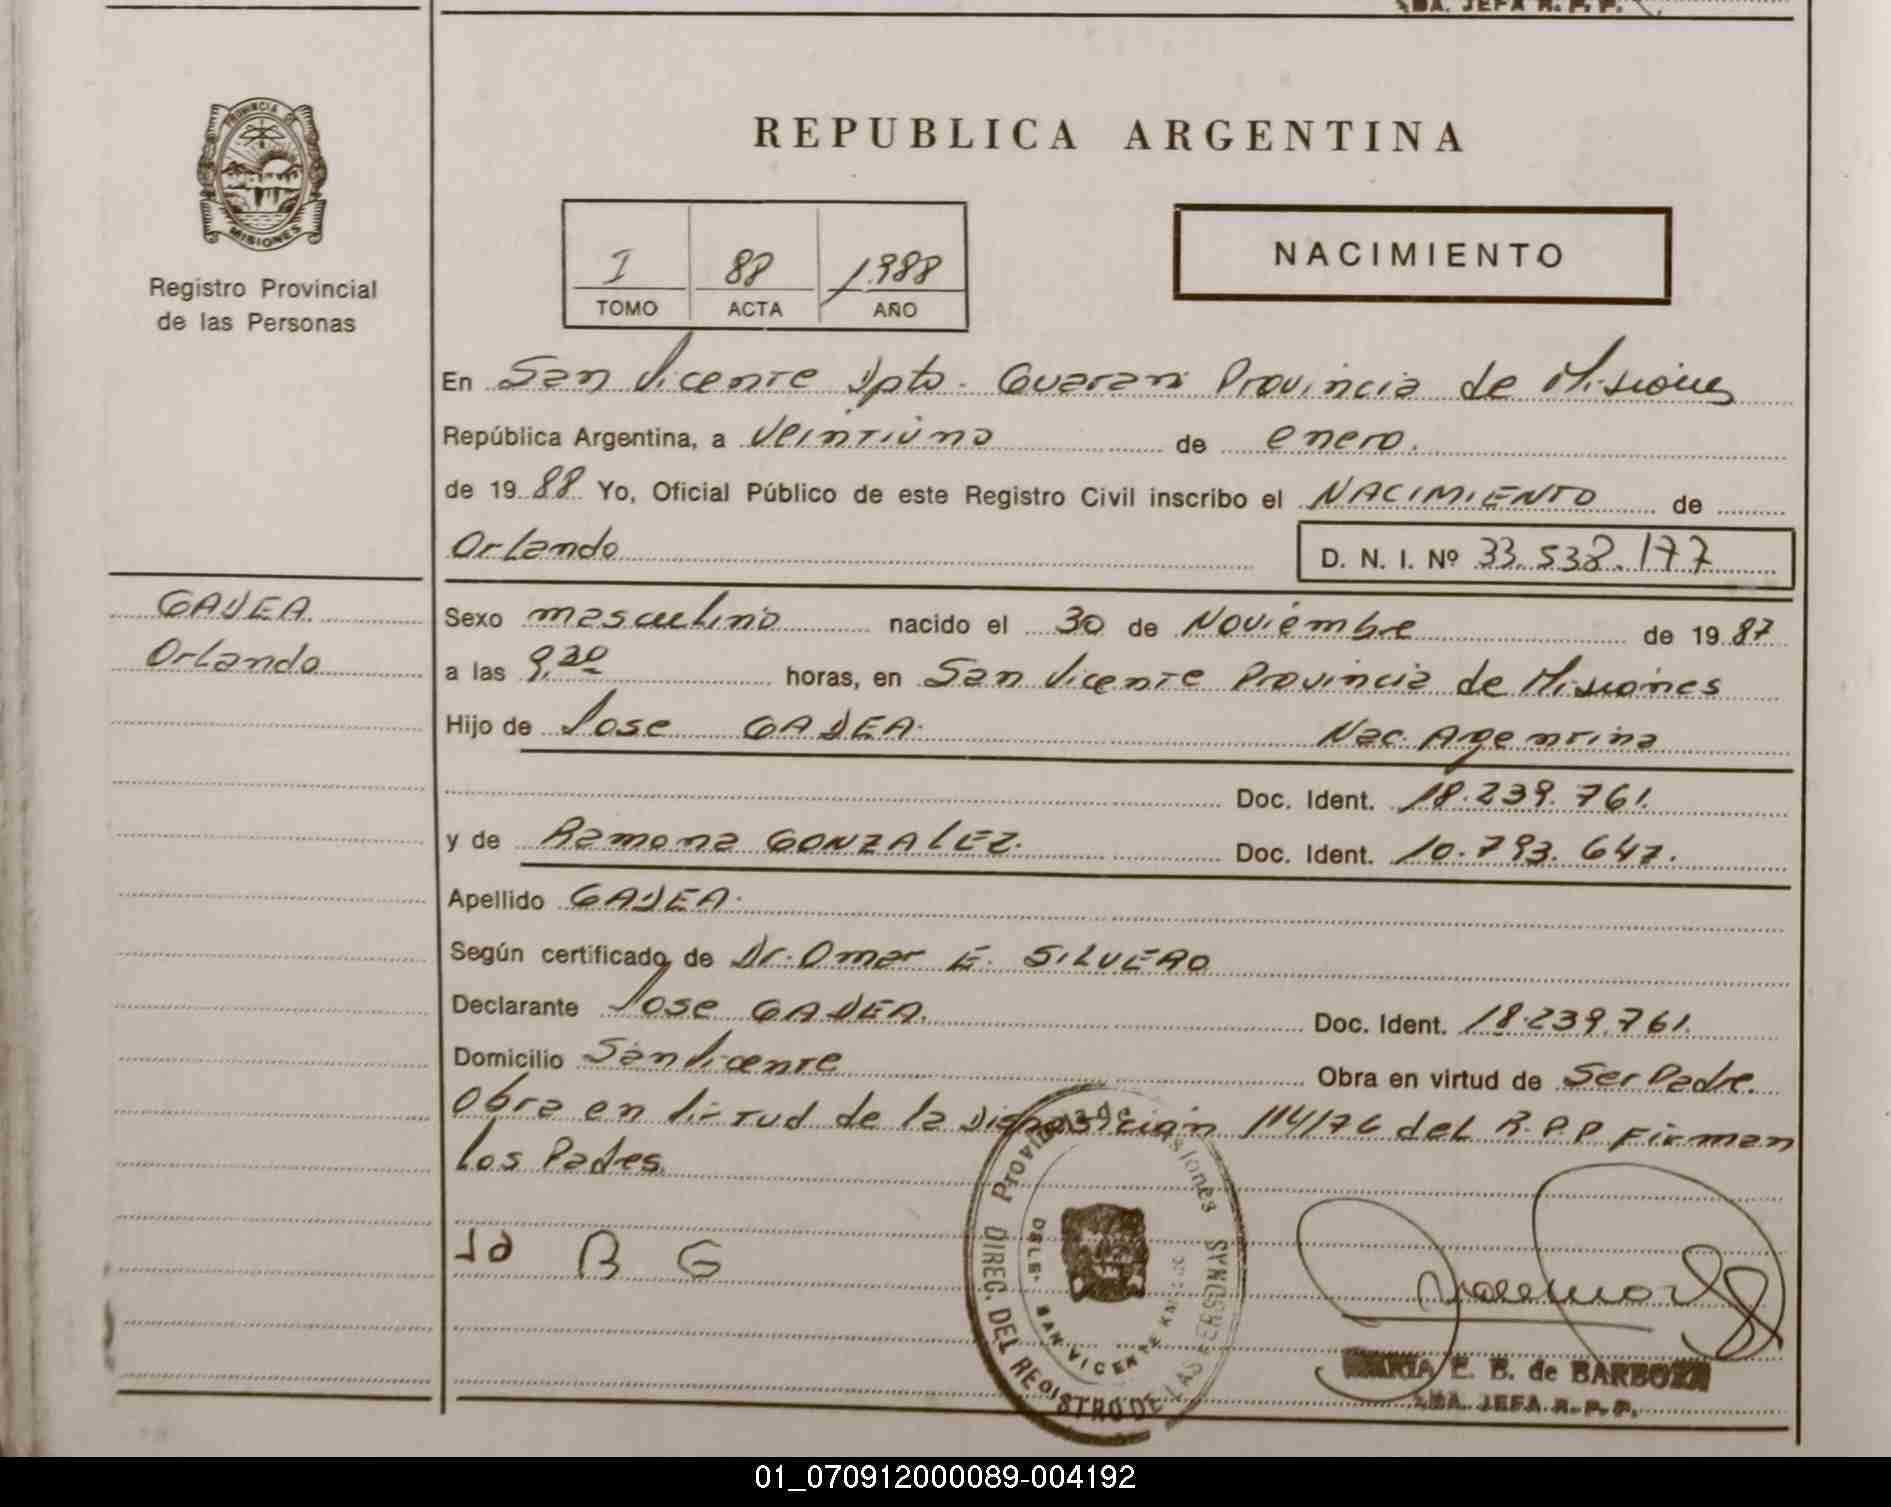 2DA. JEFA R. P. P.
PROVINCIA DE
MISIONES
Registro Provincial
de las Personas
REPUBLICA ARGENTINA
I 88 1.988
TOMO ACTA AÑO
NACIMIENTO
En San Vicente Dpto. Guarani Provincia de Misiones
República Argentina, a veintiuno de enero.
de 19 88 Yo, Oficial Público de este Registro Civil inscribo el NACIMIENTO de
Orlando D. N. I. Nº 33.538.177
GADEA.
Orlando
Sexo masculino nacido el 30 de Noviembre de 19 87
a las 9,30 horas, en San Vicente Provincia de Misiones
Hijo de Jose GADEA. Nac. Argentina
Doc. Ident. 18.239.761.
y de Ramona GONZALEZ. Doc. Ident. 10.793.647.
Apellido GADEA.
Según certificado de Dr. Omar E. SILVERO
Declarante Jose GADEA. Doc. Ident. 18.239.761.
Domicilio San Vicente Obra en virtud de Ser Padre.
Obra en Virtud de la Disposición 114/76 del R.P.P Firman
los Padres.
Jo R G
Provincia de Misiones
DIREC. DEL REGISTRO DE LAS PERSONAS
DELE. SAN VICENTE
MARIA E. B. de BARBOZA
2DA. JEFA R. P. P.
01_070912000089-004192